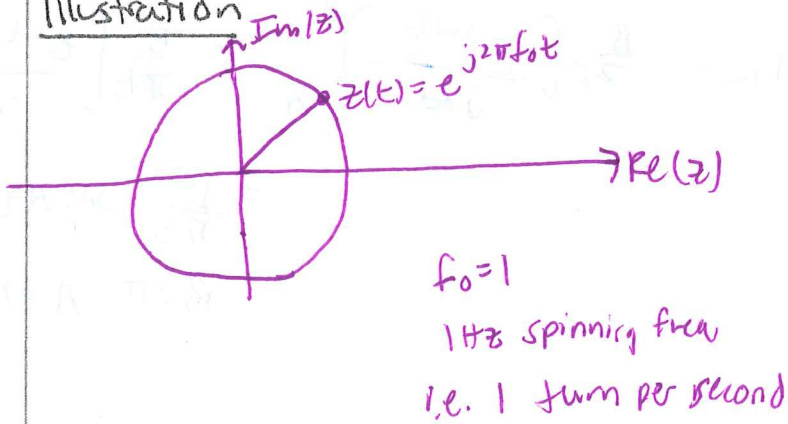 Illustration
Im(z)
z(t) = e^{j2πf₀t}
Re(z)
f₀=1
1Hz spinning freq
i.e. 1 turn per second